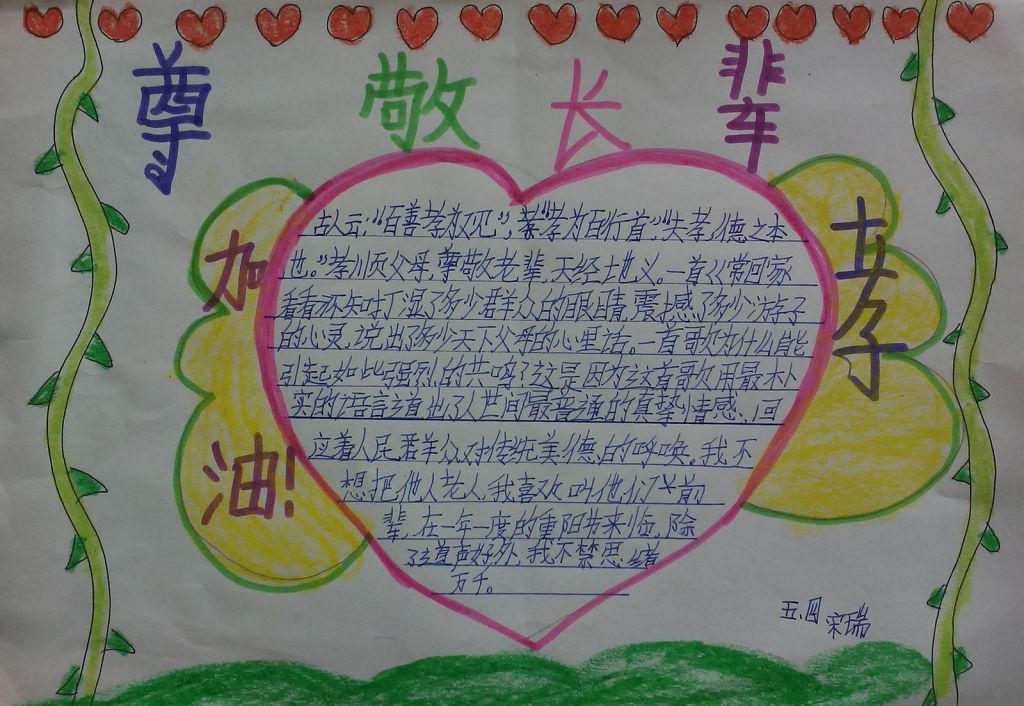 尊敬长辈
加油!
古人云:“百善孝为见”,“孝为百行首”,“失孝,德之本
也。”孝川页父母,尊敬老辈,天经土地义。一首《常回家
看看》不知打湿了多少群众的眼睛,震撼了多少游子
的心灵,说出了多少天下父母的心里话。一首歌为什么能
引起如此强烈的共鸣?这是因为这首歌用最朴
实的语言道出了人世间最普通的真挚情感,回
应着人民群众对传统美德的呼唤。我不
想把他人老人,我喜欢叫他们父前
辈,在一年一度的重阳节来临,除
了道声好外,我不禁思绪
万千。
五、四 宋瑞